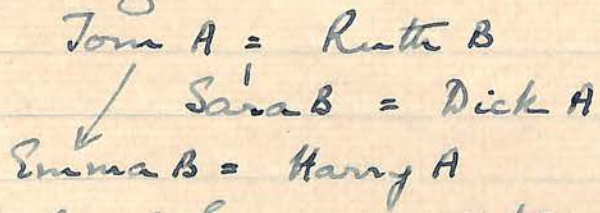 Tom A = Ruth B
Sara B = Dick A
Emma B = Harry A